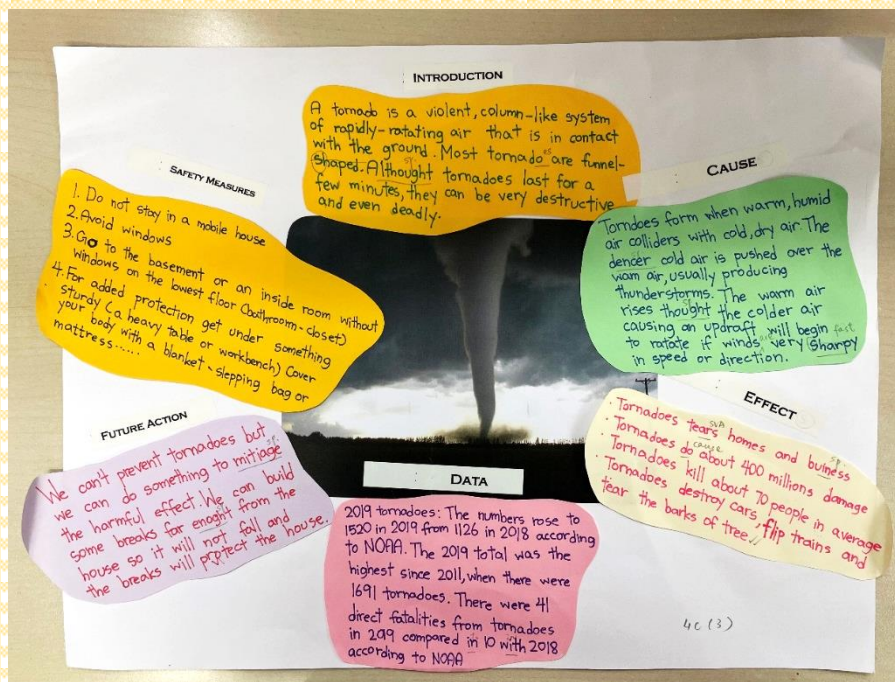 INTRODUCTION
A tornado is a violent, column-like system
of rapidly-rotating air that is in contact
with the ground. Most tornado es are funnel-
shaped. Althought sp. tornadoes last for a
few minutes, they can be very destructive
and even deadly.
SAFETY MEASURES
1. Do not stay in a mobile house
2. Avoid windows
3. Go to the basement or an inside room without
windows on the lowest floor (bathroom-closet)
4. For added protection get under something
sturdy (a heavy table or workbench) Cover
your body with a blanket-slepping bag or
mattress......
CAUSE
Torndoes form when warm, humid
air colliders with cold, dry air. The
dencer cold air is pushed over the
wam air, usually producing
thunderstorms. The warm air
rises thought sp. the colder air
causing an updraft will begin
to rotate if winds very sharpy
in speed or direction.
EFFECT
Tornadoes tears SVA homes and buiness sp.
· Tornadoes do cause about 400 millions damage
· Tornadoes kill about 70 people in average
· Tornadoes destroy cars, flip trains and
tear the barks of tree.
FUTURE ACTION
We can't prevent tornadoes but
we can do something to mitiage sp.
the harmful effect. We can build
some breaks far enoght from the
house so it will not fall and
the breaks will protect the house.
DATA
2019 tornadoes: The numbers rose to
1520 in 2019 from 1126 in 2018 according
to NOAA. The 2019 total was the
highest since 2011, when there were
1691 tornadoes. There were 41
direct fatalities from tornadoes
in 2019 compared in 10 with 2018
according to NOAA
4C (3)